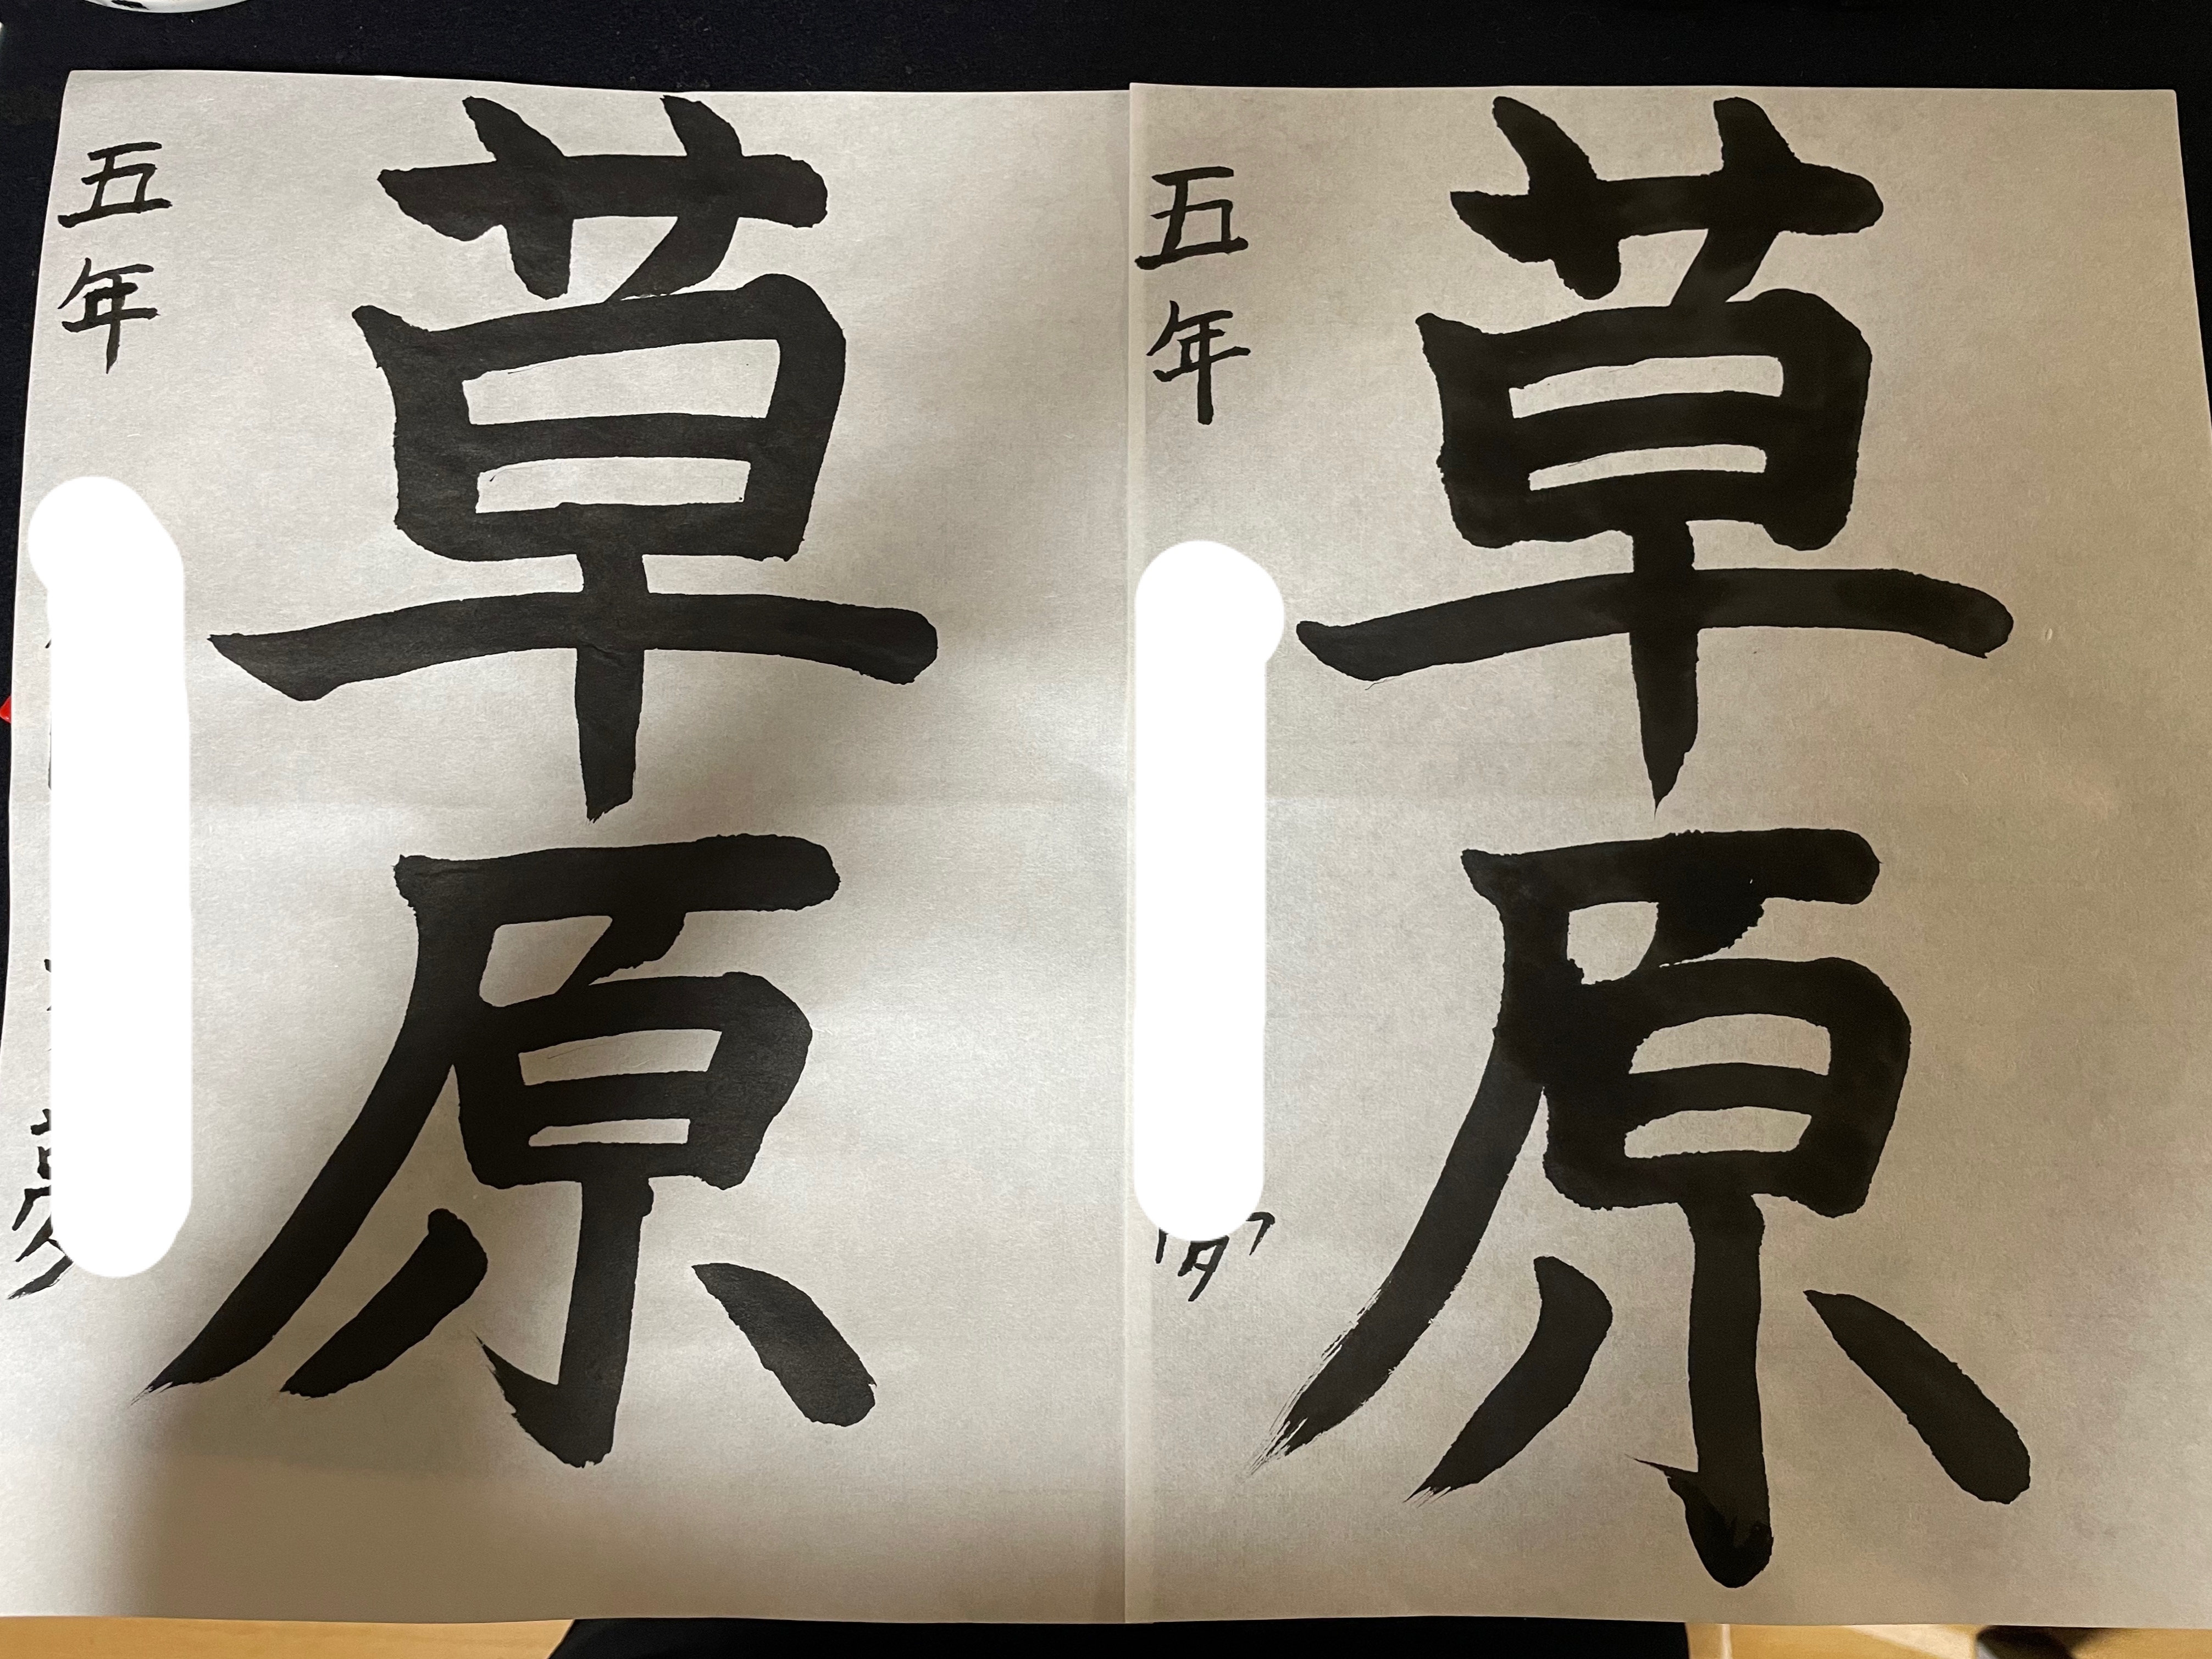 草原
五年
夢
草原
五年